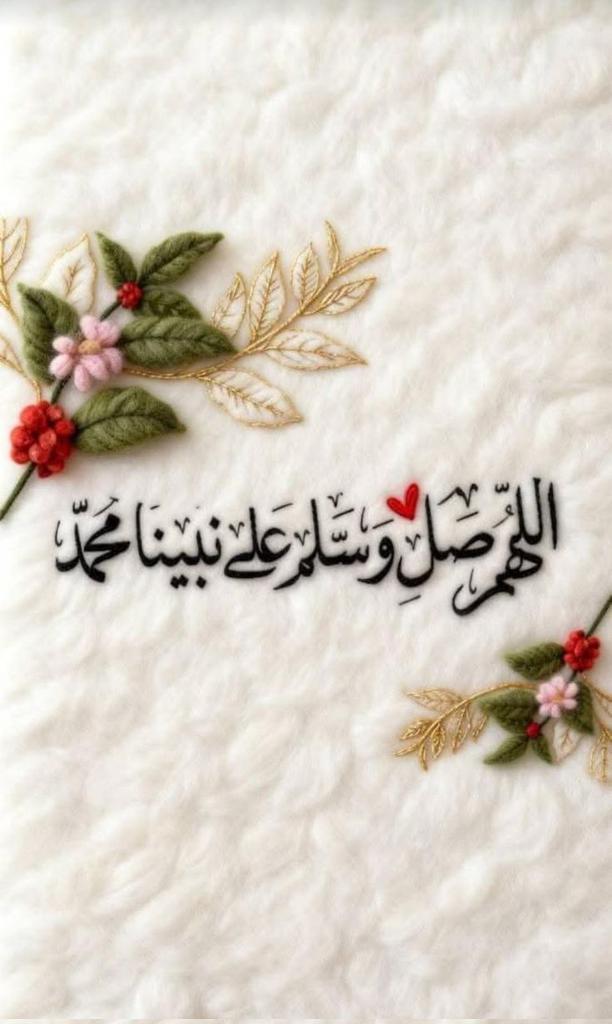 اللهم صَلِ وَسَلم عَلى نبينَا محمدّ